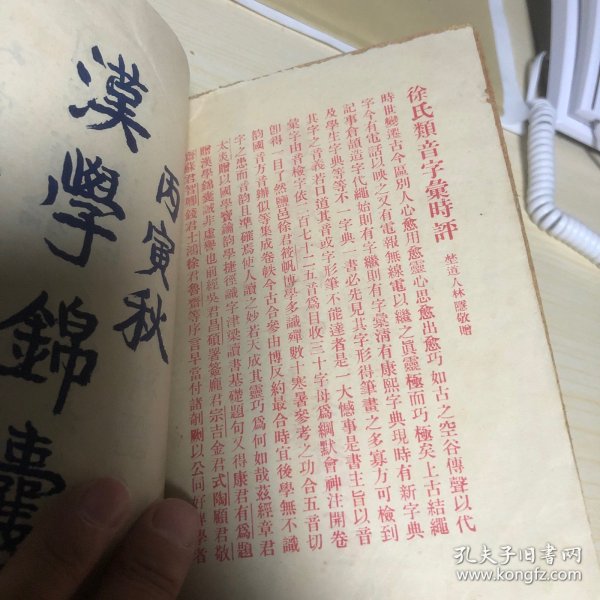 徐氏類音字彙時評
埜道人林隱敬贈
時世變遷古今區別人心愈用愈靈心思愈出愈巧如古之空谷傳聲以代
字今有電話以映之又有電報無線電以繼之眞靈極而巧極矣上古結繩
記事倉頡造字代繩始則有字繼則有字彙淸有康熙字典現時有新字典
及學生字典等等不一字典一書必先見其字形得筆畫之多寡方可檢到
其字之音義若口道其音或字形筆不能達者是一大憾事是書主旨以音
彙字由音檢字依二百七十二五音爲目收三十字母爲綱默會神注開卷
卽得一目了然鹽邑徐君筱帆博學多識殫數十寒暑參考之功合五音切
韵國音方音雖似等集成卷帙今古合參由博反約最合時宜後學無不識
字之患而音韵且準確焉使人讀之妙若天成其靈巧爲何如哉茲經章君
太炎贈以國學寶籥韵學捷徑識字津梁讀書基礎題句又得康君有爲題
贈漢學錦囊誠非虛譽也前經吳君昌碩署籤龐君宗吉金君式陶顧君敬
齋蘇君智剛錢君士涵徐君魯齋等序言早當付諸剞劂以公同好俾學者
丙寅秋
漢學錦囊
孔夫子旧书网
www.kongfz.com